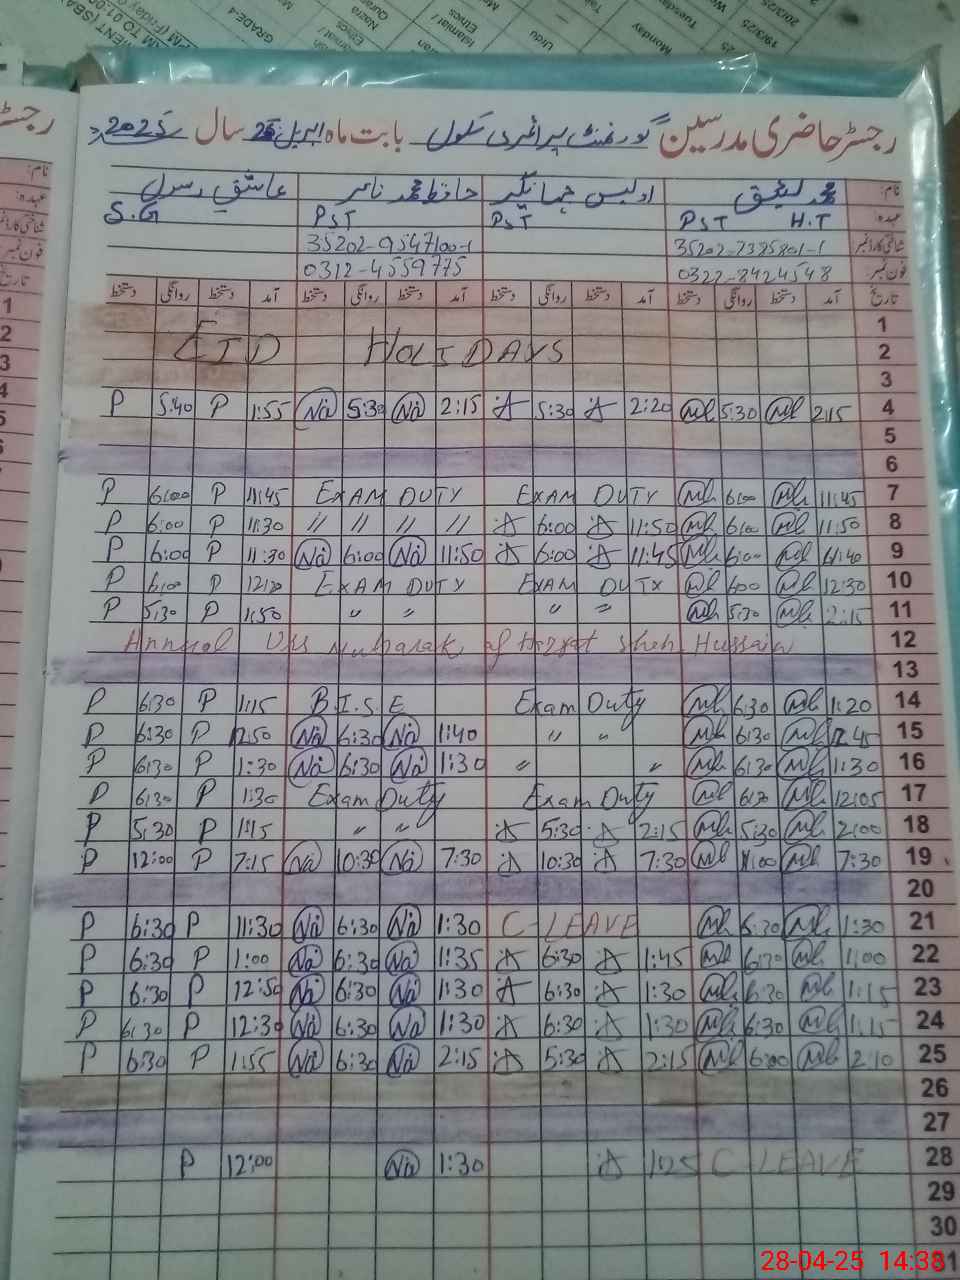 رجسٹر حاضری مدرسین گورنمنٹ پرائمری سکول بابت ماہ اپریل 25 سال 2025ء
نام: محمد لئیق اویس جہانگیر حافظ محمد ناصر عاشق رسول
عہدہ: PST H.T PST PST S.G
شناختی کارڈ نمبر 35202-9547100-1
فون نمبر: 0322-8424548 0312-4559775
تاریخ آمد دستخط روانگی دستخط آمد دستخط روانگی دستخط آمد دستخط روانگی دستخط آمد دستخط روانگی دستخط
1
EID HOLIDAYS 2
3
P 5:40 P 1:55 Na 5:30 Na 2:15 A 5:30 A 2:20 Ml 5:30 Ml 2:15 4
5
6
P 6:00 P 11:45 EXAM DUTY EXAM DUTY Ml 6:00 Ml 11:45 7
P 6:00 P 11:30 〃 〃 〃 〃 A 6:00 A 11:50 Ml 6:00 Ml 11:50 8
P 6:00 P 11:30 Na 6:00 Na 11:50 A 6:00 A 11:45 Ml 6:00 Ml 11:40 9
P 6:00 P EXAM DUTY EXAM DUTY Ml 6:00 Ml 12:30 10
P 5:30 P 1:50 〃 〃 〃 〃 Ml 5:30 Ml 2:15 11
Annual Urs Mubarak of Hazrat Shah Hussain 12
13
P 6:30 P 1:15 B.I.S.E Exam Duty Ml 6:30 Ml 1:20 14
P 6:30 P 12:50 Na 6:30 Na 1:40 〃 〃 Ml 6:30 Ml 12:45 15
P 6:30 P 1:30 Na 6:30 Na 1:30 〃 〃 Ml 6:30 Ml 1:30 16
P 6:30 P 1:30 Exam Duty Exam Duty Ml 6:30 Ml 12:05 17
P 5:30 P 1:15 〃 〃 A 5:30 A 2:15 Ml 5:30 Ml 2:00 18
P 12:00 P 7:15 Na 10:30 Na 7:30 A 10:30 A 7:30 Ml Ml 7:30 19
20
P 6:30 P 11:30 Na 6:30 Na 1:30 C-LEAVE Ml 6:30 Ml 1:30 21
P 6:30 P 1:00 Na 6:30 Na 1:35 A 6:30 A 1:45 Ml 6:30 Ml 1:00 22
P 6:30 P 12:50 Na 6:30 Na 1:30 A 6:30 A 1:30 Ml 6:30 Ml 1:15 23
P 6:30 P 12:30 Na 6:30 Na 1:30 A 6:30 A 1:30 Ml 6:30 Ml 1:15 24
P 6:30 P 1:55 Na 6:30 Na 2:15 A 5:30 A 2:15 Ml 6:00 Ml 2:10 25
26
27
P 12:00 Na 1:30 A 1:25 C LEAVE 28
29
30
31
28-04-25 14:38